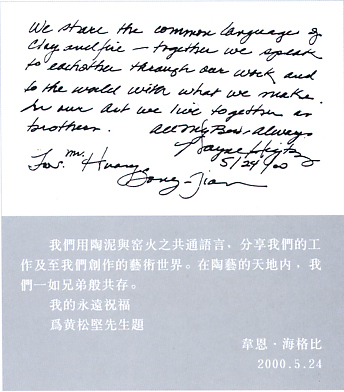 We share the common language of
clay and fire — together we speak
to eachother through our work and
to the world with what we make.
In our art we live together as
brothers. All My Best - Always
Wayne Higby
For. Mr. Huang 5/24/00
Song-Jian
我們用陶泥與窑火之共通語言，分享我們的工
作及至我們創作的藝術世界。在陶藝的天地内，我
們一如兄弟般共存。
我的永遠祝福
爲黄松堅先生題
韋恩·海格比
2000.5.24